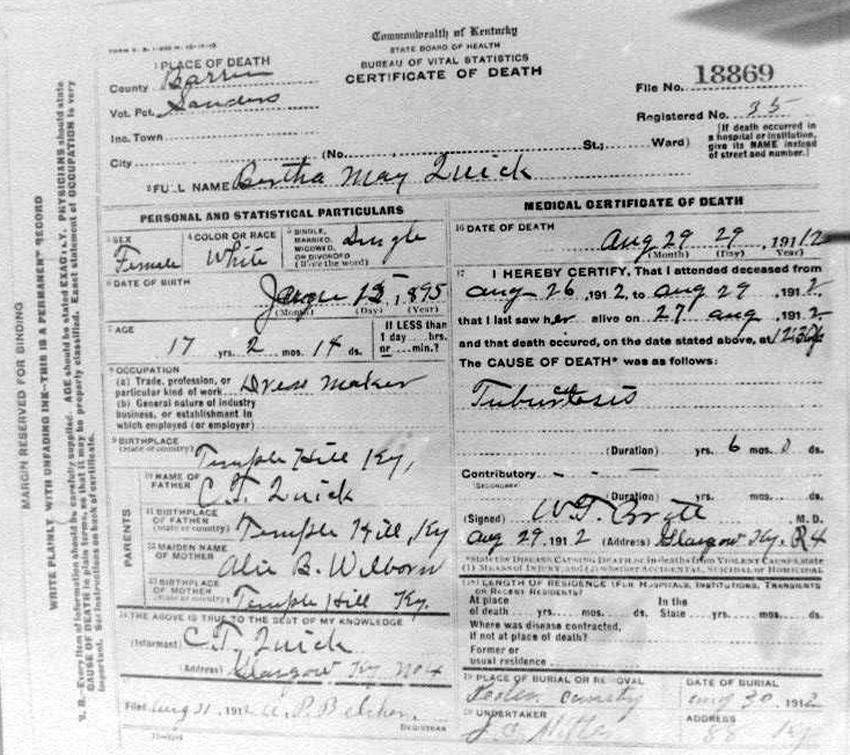 Commonwealth of Kentucky
STATE BOARD OF HEALTH
BUREAU OF VITAL STATISTICS
CERTIFICATE OF DEATH
1 PLACE OF DEATH
County Barren
Vot. Pct. Sanders
Inc. Town
City (No. St.; Ward)
File No. 18869
Registered No. 35
(If death occurred in
a hospital or institution,
give its NAME instead
of street and number.)
2 FULL NAME Bertha May Quick
PERSONAL AND STATISTICAL PARTICULARS
3 SEX
Female
4 COLOR OR RACE
White
5 SINGLE,
MARRIED,
WIDOWED,
OR DIVORCED
(Write the word)
Single
6 DATE OF BIRTH
15, 1895
(Month) (Day) (Year)
7 AGE
17 yrs. 2 mos. 14 ds.
If LESS than
1 day hrs.
or min.?
8 OCCUPATION
(a) Trade, profession, or
particular kind of work Dress maker
(b) General nature of industry
business, or establishment in
which employed (or employer)
9 BIRTHPLACE
(State or country)
Temple Hill Ky,
PARENTS
10 NAME OF
FATHER
C. T. Quick
11 BIRTHPLACE
OF FATHER
(State or country)
Temple Hill, Ky
12 MAIDEN NAME
OF MOTHER
B. Wilborn
13 BIRTHPLACE
OF MOTHER
(State or country)
Temple Hill Ky.
14 THE ABOVE IS TRUE TO THE BEST OF MY KNOWLEDGE
(Informant) C. T. Quick
(Address) Glasgow Ky No 4
15
Filed Aug 31, 191 P. Belcher
REGISTRAR
MEDICAL CERTIFICATE OF DEATH
16 DATE OF DEATH
Aug 29 29, 1912
(Month) (Day) Year)
17 I HEREBY CERTIFY, That I attended deceased from
Aug 26, 1912, to Aug 29, 1912,
that I last saw her alive on 27 Aug, 1912
and that death occured, on the date stated above, at 12:30
The CAUSE OF DEATH* was as follows:
(Duration) yrs. 6 mos. 0 ds.
Contributory
(SECONDARY)
(Duration) yrs. mos. ds.
(Signed) M.D.
Aug 29, 1912 (Address) Glasgow Ky. R4
*State the DISEASE CAUSING DEATH, or in deaths from VIOLENT CAUSES, state
(1) MEANS OF INJURY, and (2) whether ACCIDENTAL, SUICIDAL OR HOMICIDAL
18 LENGTH OF RESIDENCE (FOR HOSPITALS, INSTITUTIONS, TRANSIENTS
OR RECENT RESIDENTS)
At place
of death yrs. mos. ds.
In the
State yrs. mos. ds.
Where was disease contracted,
if not at place of death?
Former or
usual residence
19 PLACE OF BURIAL OR REMOVAL
DATE OF BURIAL
Aug 30, 1912
20 UNDERTAKER
J. C.
ADDRESS
MARGIN RESERVED FOR BINDING
WRITE PLAINLY WITH UNFADING INK—THIS IS A PERMANENT RECORD
N. B.—Every item of information should be carefully supplied. AGE should be stated EXACTLY. PHYSICIANS should state
CAUSE OF DEATH in plain terms, so that it may be properly classified. Exact statement of OCCUPATION is very
important. See instructions on back of certificate.